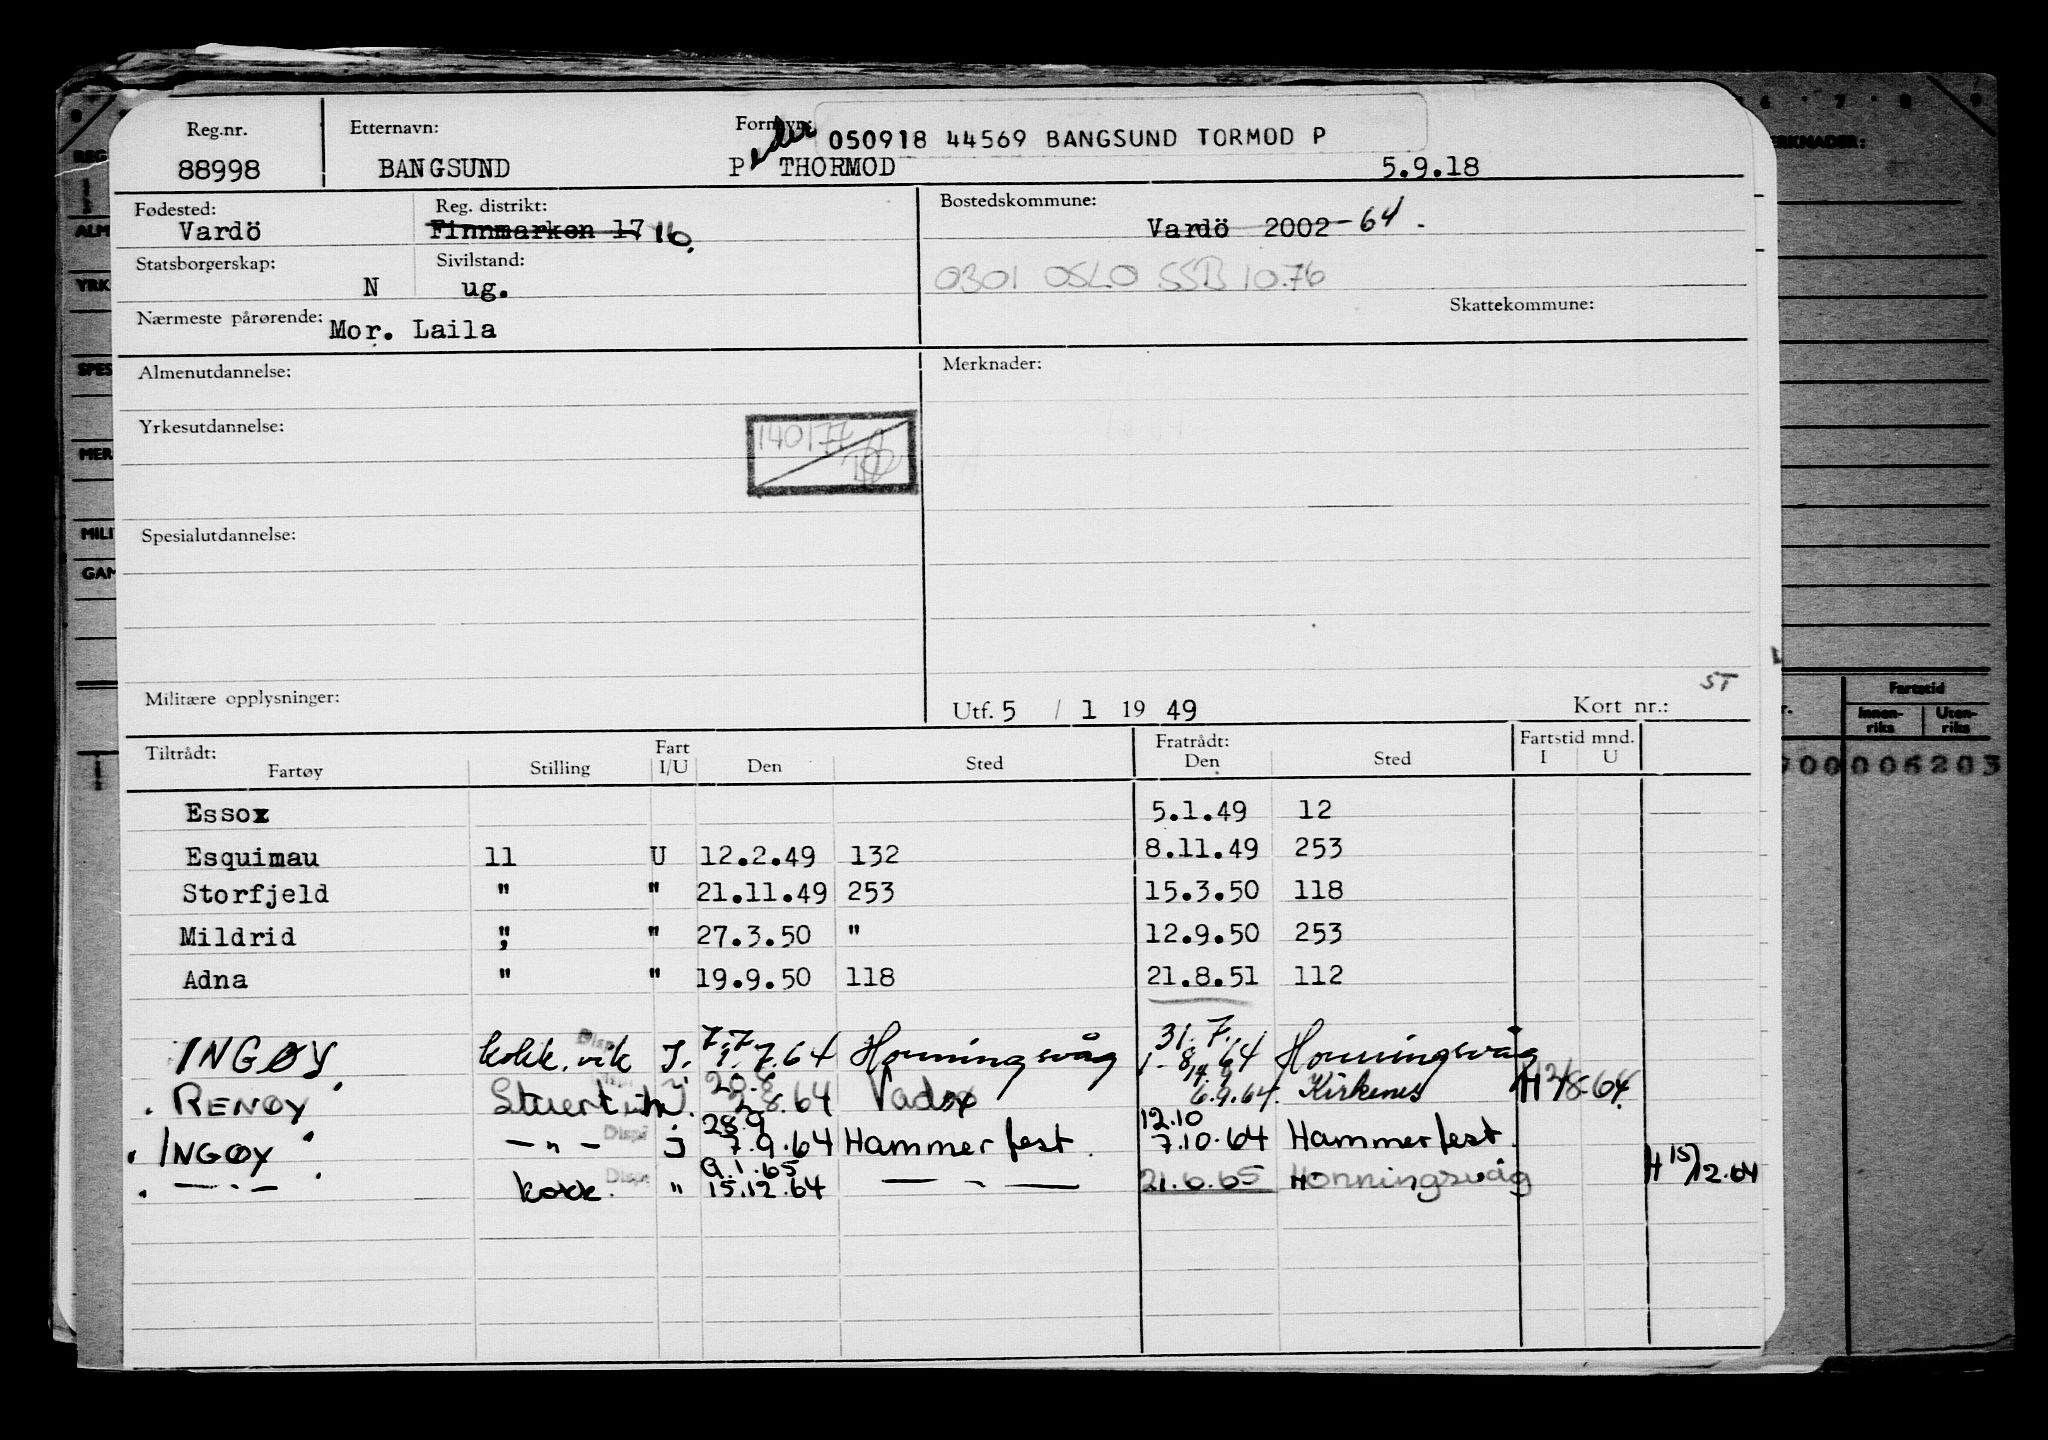 Reg.nr. Etternavn: Fornavn: 050918 44569 BANGSUND TORMOD P
88998 BANGSUND Peder THORMOD 5.9.18
Fødested: Reg. distrikt: Bostedskommune:
Vardö Finnmarken 17 16. Vardö 2002-64.
Statsborgerskap: Sivilstand: 0301 OSLO SSB 10.76
N ug.
Skattekommune:
Nærmeste pårørende: Mor. Laila
Almenutdannelse: Merknader:
Yrkesutdannelse:
140177
Spesialutdannelse:
ST
Militære opplysninger: Utf. 5 / 1 19 49 Kort nr.:
Tiltrådt: Fart Fratrådt: Fartstid mnd.
Fartøy Stilling I/U Den Sted Den Sted I U
Essox 5.1.49 12
Esquimau 11 U 12.2.49 132 8.11.49 253
Storfjeld " " 21.11.49 253 15.3.50 118
Mildrid " " 27.3.50 " 12.9.50 253
Adna " " 19.9.50 118 21.8.51 112
7.7. 31.7.
INGØY kokk. vik I. 1.7.64 Honningsvåg 1-8-64 Honningsvåg
20.8 14.9
RENØY Stuert 2.8.64 Vadsø 6.9.64. Kirkenes H 12/8-64
28.9 12.10
INGØY — " — Disp j 7.9.64 Hammerfest. 7.10.64 Hammerfest.
9.1.65
— " — kokk. Disp " 15.12.64 — " — 21.6.65 Honningsvåg H 15/12.64
6 7 8 9
MERKNADER:
REG
ALM
YRK
SPES
MER
MILI
GAM
Fartstid
Innen-riks Uten-riks
000006203